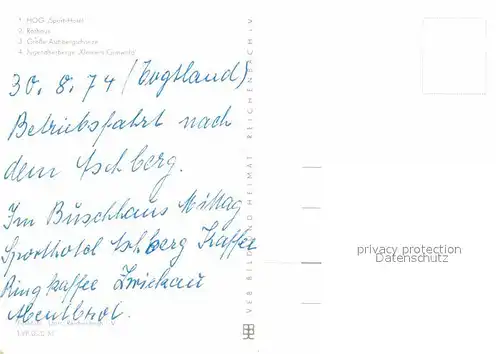 1. HOG „Sporthotel“
2. Rathaus
3. Große Aschbergschanze
4. Jugendherberge „Klement Gottwald“
30. 8. 74 (Vogtland)
Betriebsfahrt nach
dem Aschberg.
Im Buschhaus Mittag
Sporthotel Aschberg Kaffee
Ringkaffee Zwickau
Abendbrot.
VEB BILD UND HEIMAT REICHENBACH I. V.
privacy protection
Datenschutz